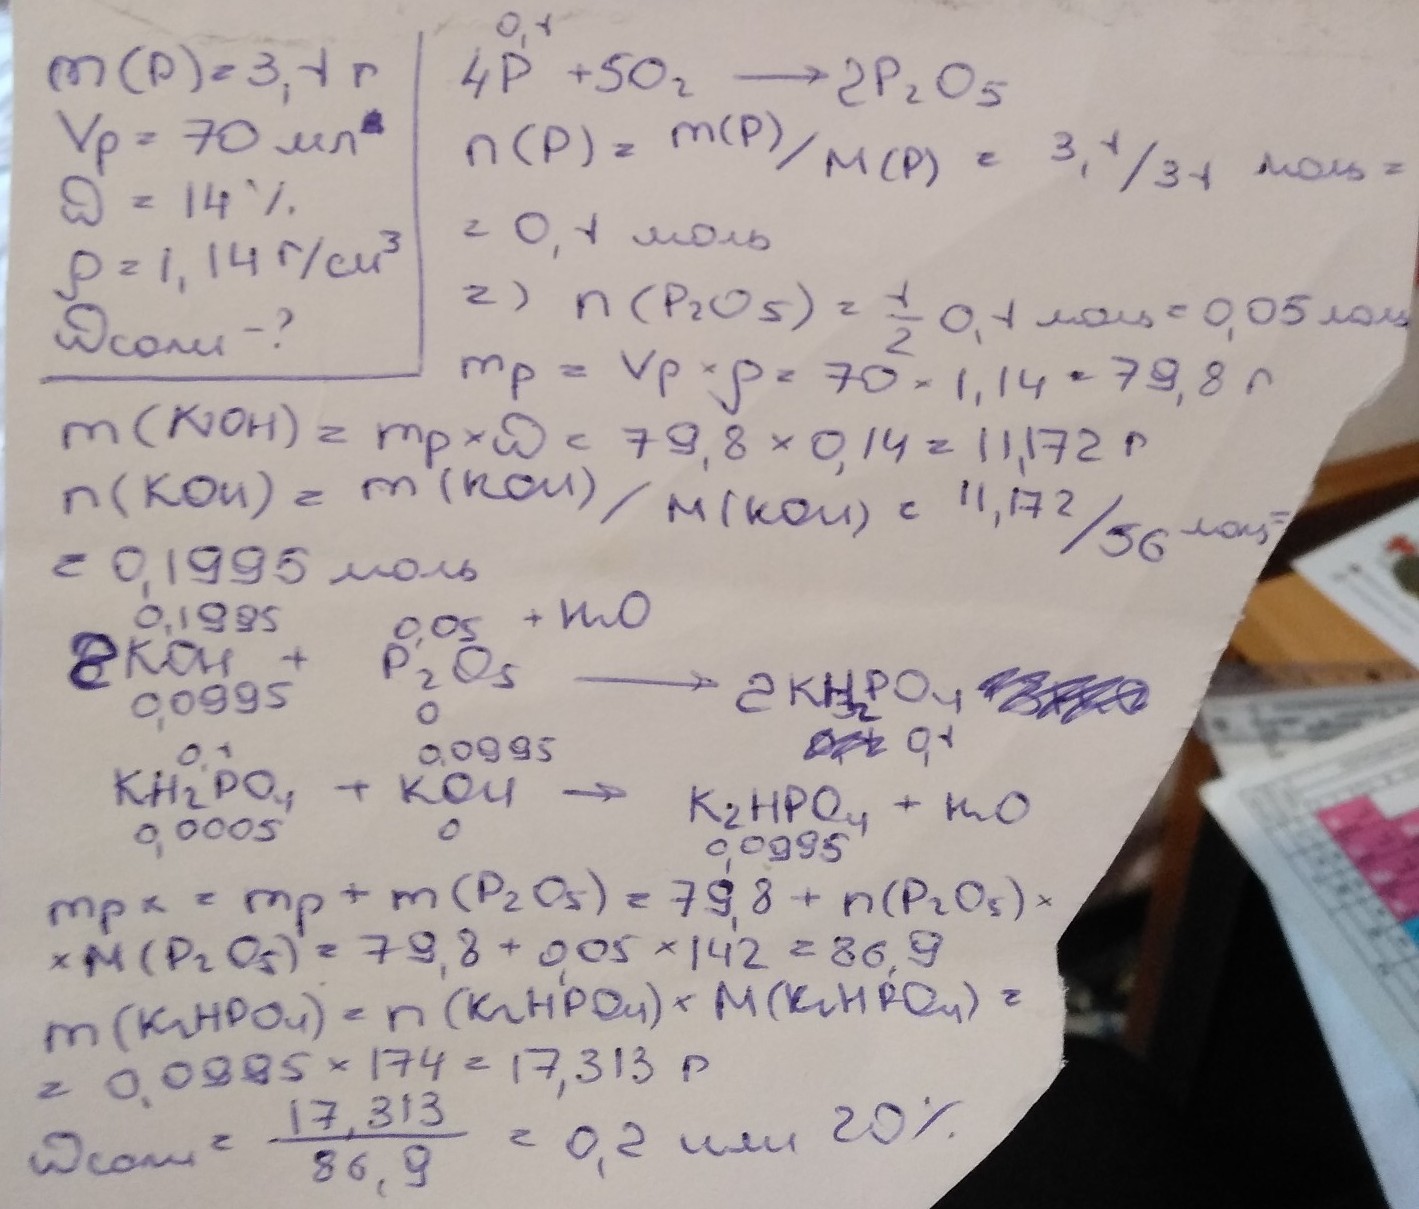 m(P) = 3,1 г
Vp = 70 мл
ω = 14%
ρ = 1,14 г/см³
ωсоли - ?
0,1
4P + 5O₂ ⟶ 2P₂O₅
n(P) = m(P)/M(P) = 3,1/31 моль =
= 0,1 моль
=> n(P₂O₅) = 1/2 0,1 моль = 0,05 моль
mp = Vp × ρ = 70 × 1,14 = 79,8 г
m(KOH) = mp × ω = 79,8 × 0,14 = 11,172 г
n(KOH) = m(KOH)/M(KOH) = 11,172/56 моль =
= 0,1995 моль
0,1995 0,05 + H₂O
2KOH + P₂O₅ ⟶ 2KH₂PO₄
0,0995 0 0,1
0,1 0,0995
KH₂PO₄ + KOH → K₂HPO₄ + H₂O
0,0005 0 0,0995
mpx = mp + m(P₂O₅) = 79,8 + n(P₂O₅) ×
× M(P₂O₅) = 79,8 + 0,05 × 142 = 86,9
m(K₂HPO₄) = n(K₂HPO₄) × M(K₂HPO₄) =
= 0,0995 × 174 = 17,313 г
ωсоли = 17,313/86,9 = 0,2 или 20%